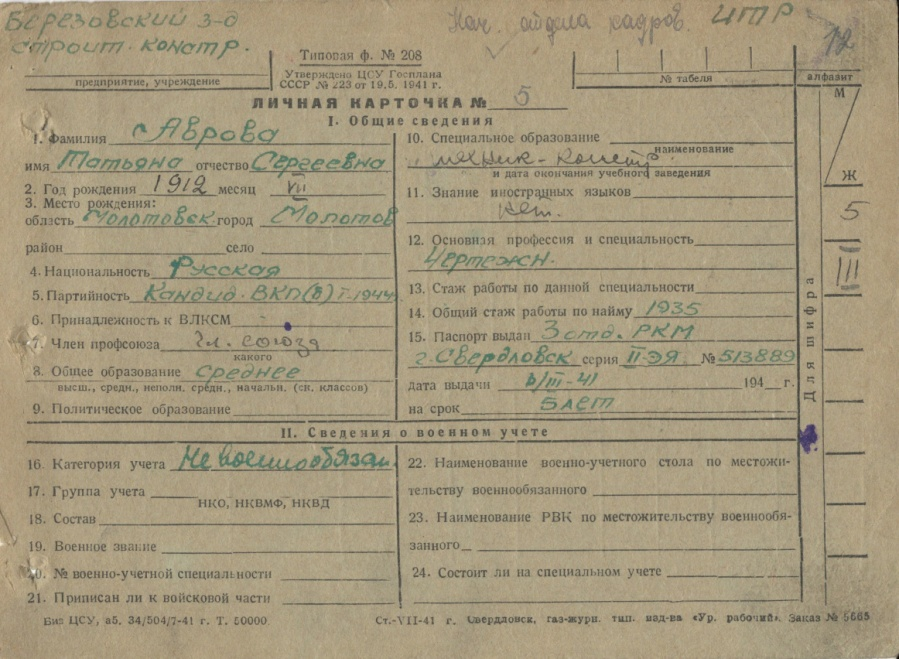 Березовский з-д
строит. констр.
Нач. отдела кадров. ИТР
12
предприятие, учреждение
Типовая ф. № 208
Утверждено ЦСУ Госплана
СССР № 223 от 19.5. 1941 г.
№ табеля
алфавит
ЛИЧНАЯ КАРТОЧКА № 5
I. Общие сведения
1. Фамилия Аврова
имя Татьяна отчество Сергеевна
2. Год рождения 1912 месяц VII
3. Место рождения:
область Молотовск. город Молотов
район село
4. Национальность Русская
5. Партийность Кандид. ВКП(б) I-1944
6. Принадлежность к ВЛКСМ —
7. Член профсоюза Чл. союза
какого
8. Общее образование среднее
высш., средн., неполн. средн., начальн. (ск. классов)
9. Политическое образование
10. Специальное образование
наименование
техник-констр
и дата окончания учебного заведения
11. Знание иностранных языков
нет.
12. Основная профессия и специальность
Чертежн.
13. Стаж работы по данной специальности
14. Общий стаж работы по найму 1935
15. Паспорт выдан 3 отд. РКМ
г. Свердловск серия II-ЭЯ № 513889
дата выдачи 6/III-41 194 г.
на срок 5 лет
М
Ж
5
III
Для шифра
II. Сведения о военном учете
16. Категория учета Не военнообязан
17. Группа учета
НКО, НКВМФ, НКВД
18. Состав
19. Военное звание
20. № военно-учетной специальности
21. Приписан ли к войсковой части
22. Наименование военно-учетного стола по местожи-
тельству военнообязанного
23. Наименование РВК по местожительству военнообя-
занного
24. Состоит ли на специальном учете
Биз ЦСУ, а5. 34/504/7-41 г. Т. 50000
Ст.-VII-41 г. Свердловск, газ-журн. тип. изд-ва «Ур. рабочий». Заказ № 5665